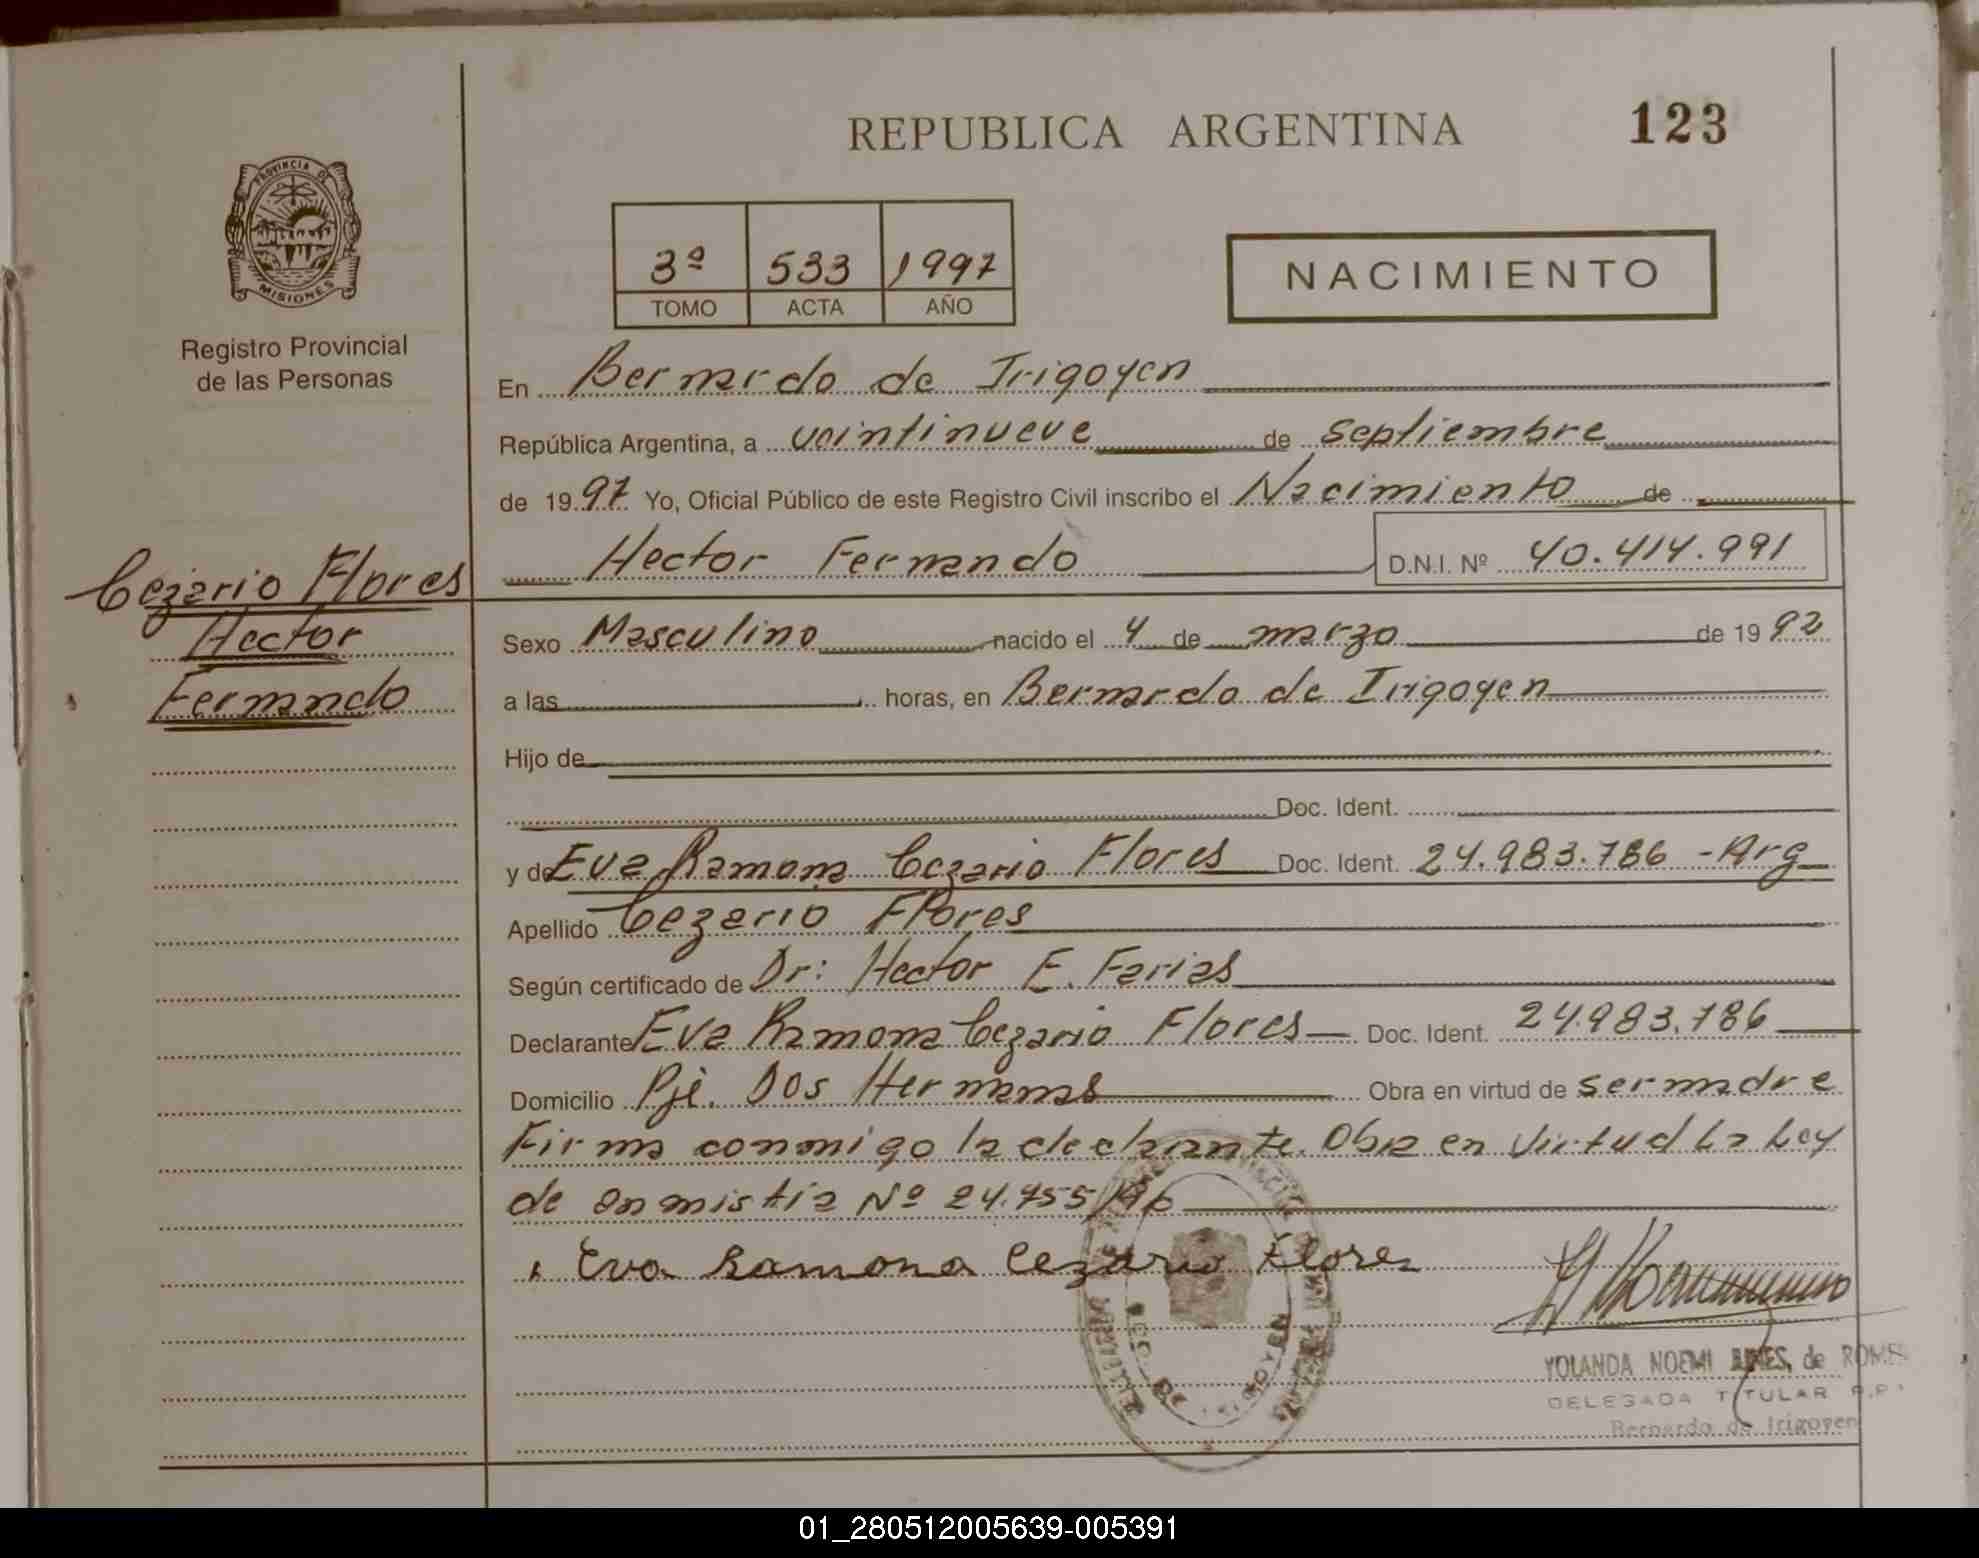 REPUBLICA ARGENTINA
123
PROVINCIA DE
MISIONES
Registro Provincial
de las Personas
3ª 533 1997
TOMO ACTA AÑO
NACIMIENTO
En Bernardo de Irigoyen
República Argentina, a veintinueve de septiembre
de 1997 Yo, Oficial Público de este Registro Civil inscribo el Nacimiento de
Hector Fernando D.N.I. Nº 40.414.991
Cezario Flores
Hector
Fernando
Sexo Masculino nacido el 4 de marzo de 1992
a las horas, en Bernardo de Irigoyen
Hijo de
Doc. Ident.
y de Eva Ramona Cezario Flores Doc. Ident. 24.983.786 - Arg
Apellido Cezario Flores
Según certificado de Dr: Hector E. Farias
Declarante Eva Ramona Cezario Flores Doc. Ident. 24.983.786
Domicilio Pje. Dos Hermanas Obra en virtud de ser madre
Firma conmigo la declarante. Obra en virtud La Ley
de anmistia Nº 24.755/96
Eva Ramona Cezario Flores
YOLANDA NOEMI de
DELEGADA TITULAR R.P.
Bernardo de Irigoyen
DE IRIGOYEN
01_280512005639-005391